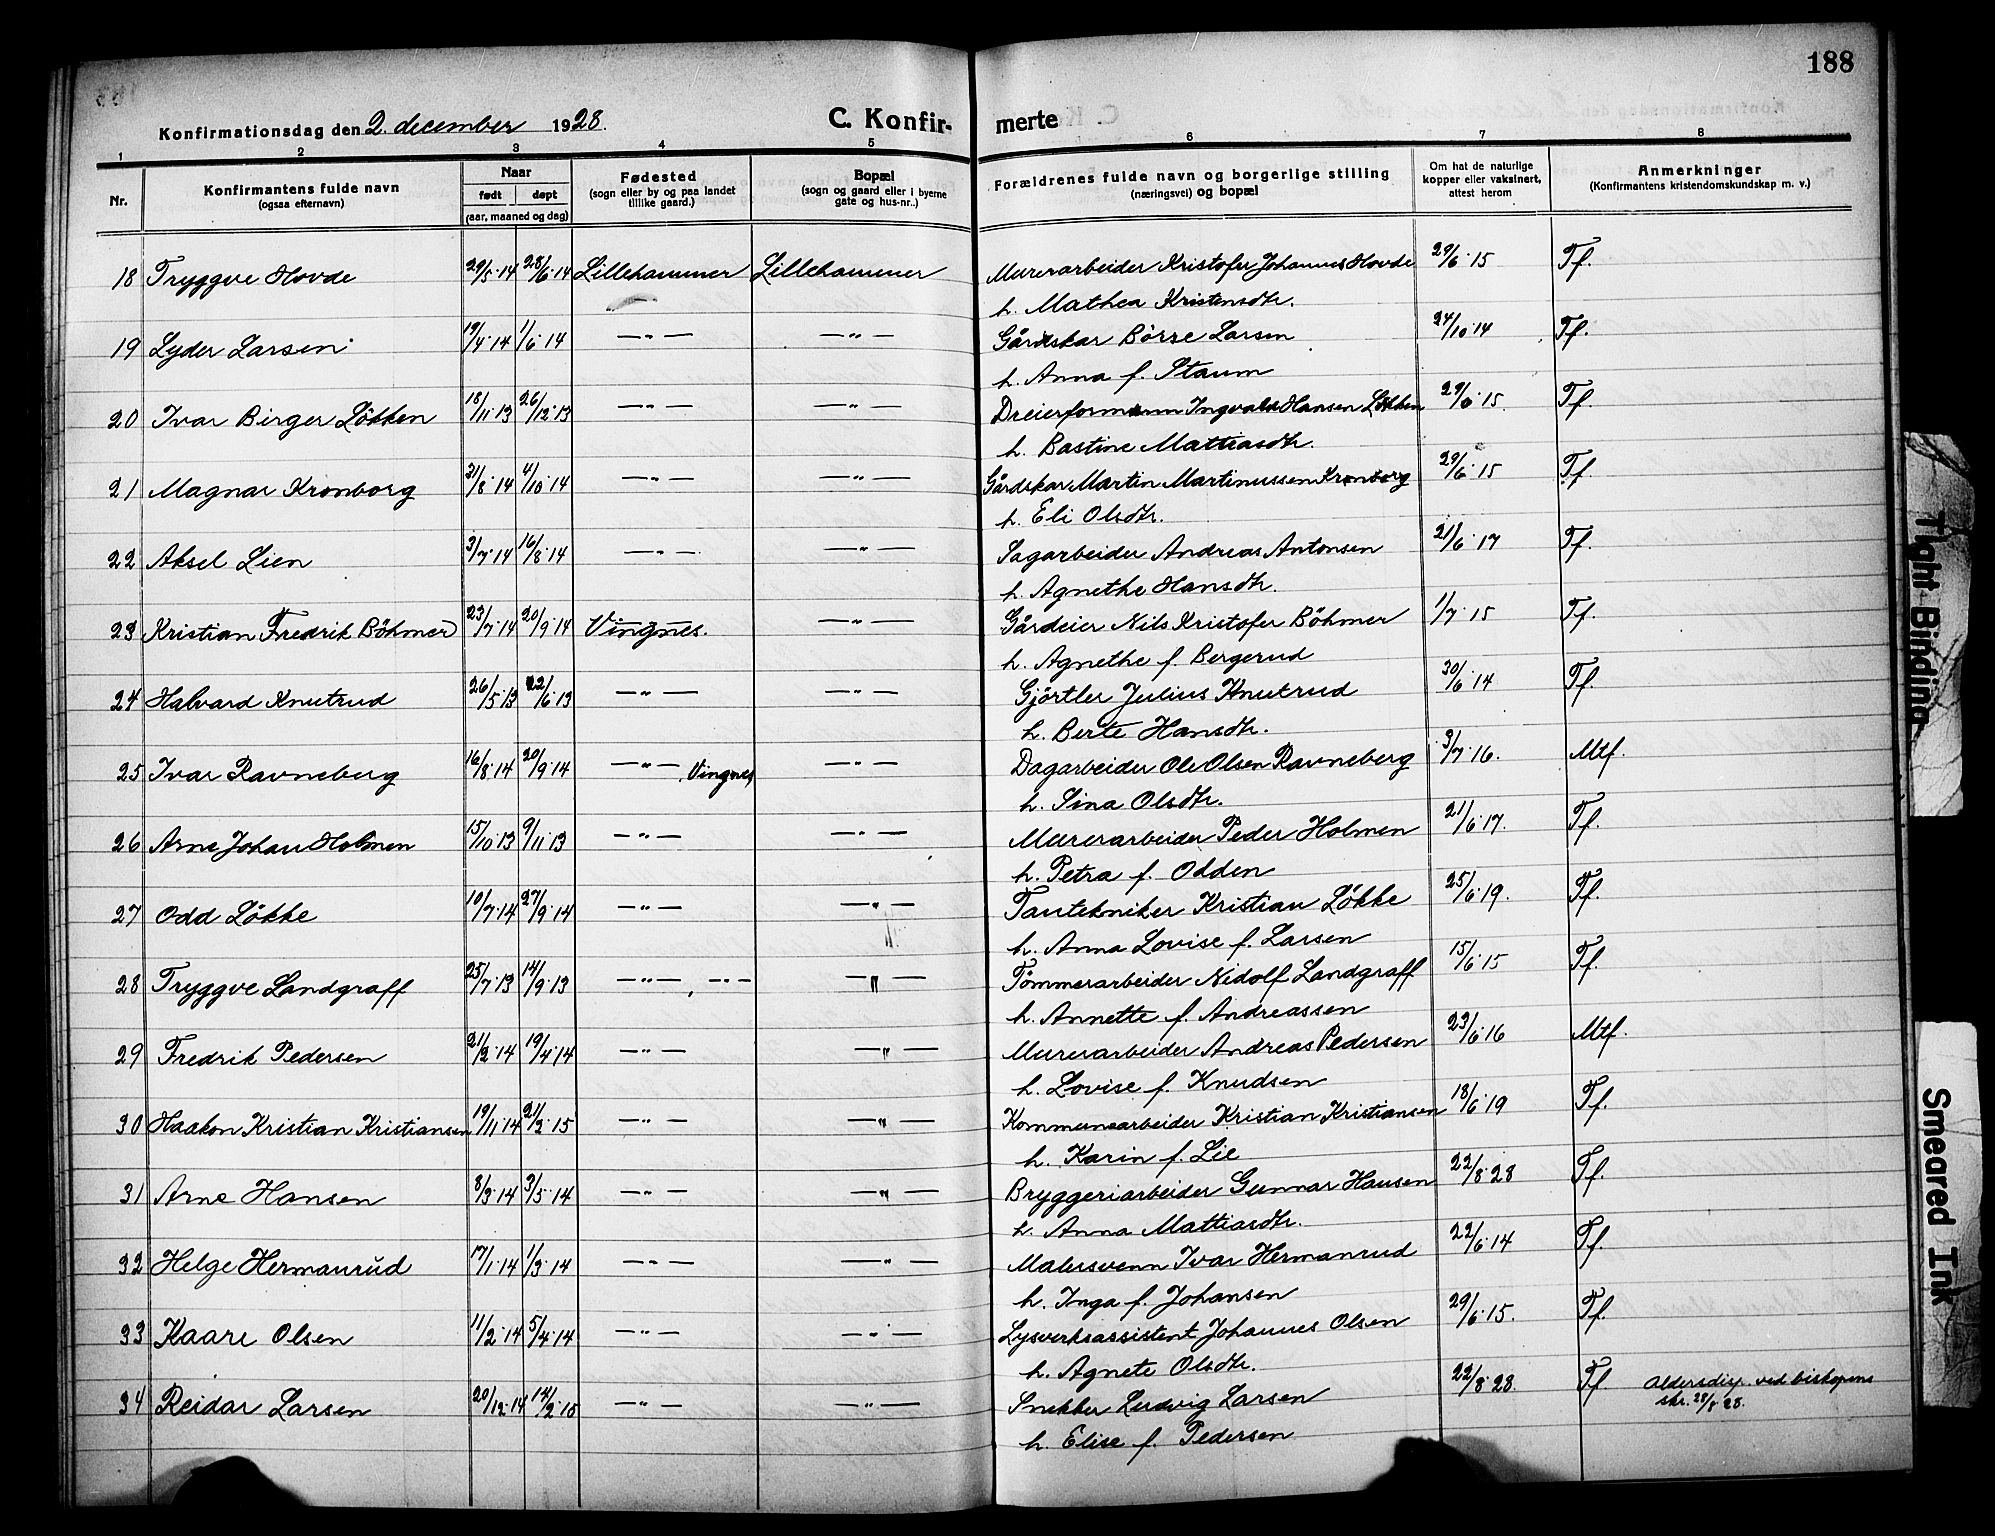 188
Konfirmationsdag den 2. december 1928. C. Konfir- merte
1 2 3 4 5 6 7 8
Nr. Konfirmantens fulde navn (ogsaa efternavn) Naar født døpt (aar, maaned og dag) Fødested (sogn eller by og paa landet tillike gaard.) Bopæl (sogn og gaard eller i byerne gate og hus-nr..) Forældrenes fulde navn og borgerlige stilling (næringsvei) og bopæl Om hat de naturlige kopper eller vaksinert, attest herom Anmerkninger (Konfirmantens kristendomskundskap m. v.)
18 Tryggve Hovde 29/5·14 28/6·14 Lillehammer Lillehammer Murerarbeider Kristofer Johannes Hovde 29/6·15 Tf.
h. Mathea Kristensdtr.
19 Lyder Larsen 19/4·14 1/6·14 —"— —"— Gårdskar Börre Larsen 24/10·14 Tf.
h. Anna f. Staum
20 Ivar Birger Løkken 18/11·13 26/12·13 —"— —"— Dreierformann Ingvald Hansen Løkken 15. Tf.
h. Bastine Mattiasdtr.
21 Magnar Kronborg 31/8·14 4/10·14 —"— —"— Gårdskar Martin Martinussen Kronborg 29/6·15 Tf.
h. Eli Olsdtr.
22 Aksel Lien 3/7·14 16/8·14 —"— —"— Sagarbeider Andreas Antonsen 21/6·17 Tf.
h. Agnethe Hansdtr.
23 Kristian Fredrik Böhmer 23/7·14 20/9·14 Vingnes. —"— Gårdeier Nils Kristofer Böhmer 1/7·15 Tf.
h. Agnethe f. Bergerud
24 Halvard Knutrud 26/5·13 22/6·13 —"— —"— Gjörtler Julius Knutrud 30/6·14 Tf.
h. Berte Hansdtr.
25 Ivar Ravneberg 16/8·14 20/9·14 —"— , Vingnes —"— Dagarbeider Ole Olsen Ravneberg 3/7·16. Mtf.
h. Sina Olsdtr.
26 Arne Johan Holmen 15/10·13 9/11·13 —"— —"— Murerarbeider Peder Holmen 21/6·17. Tf.
h. Petra f. Odden
27 Odd Løkke 10/7·14 27/9·14 —"— —"— Tantekniker Kristian Løkke 25/6·19. Tf.
h. Anna Lovise f. Larsen
28 Tryggve Landgraff 25/7·13 14/9·13 —"— , —"— —"— Tömmerarbeider Nidolf Landgraff 15/6·15 Tf.
h. Annette f. Andreassen
29 Fredrik Pedersen 21/2·14 19/4·14 —"— —"— Murerarbeider Andreas Pedersen 23/6·16 Mtf.
h. Lovise f. Knudsen
30 Haakon Kristian Kristiansen 19/11·14 21/2·15 —"— —"— Kommunearbeider Kristian Kristiansen 18/6·19 Tf.
h. Karin f. Lie
31 Arne Hansen 8/3·14 3/5·14 —"— —"— Bryggeriarbeider Gunnar Hansen 22/8·28 Tf.
h. Anna Mattiasdtr.
32 Helge Hermanrud 17/1·14 1/3·14 —"— —"— Malersvenn Ivar Hermanrud 22/6·14 Tf.
h. Inga f. Johansen
33 Kaare Olsen 11/2·14 5/4·14 —"— —"— Lysverksassistent Johannes Olsen 29/6·15. Tf.
h. Agnete Olsdtr.
34 Reidar Larsen 20/12·14 14/2·15 —"— —"— Snekker Ludvig Larsen 22/8·28. Tf Aldersdisp. ved biskopens
skr. 28/8 28.
h. Elise f. Pedersen
Tight Binding
Smeared Ink